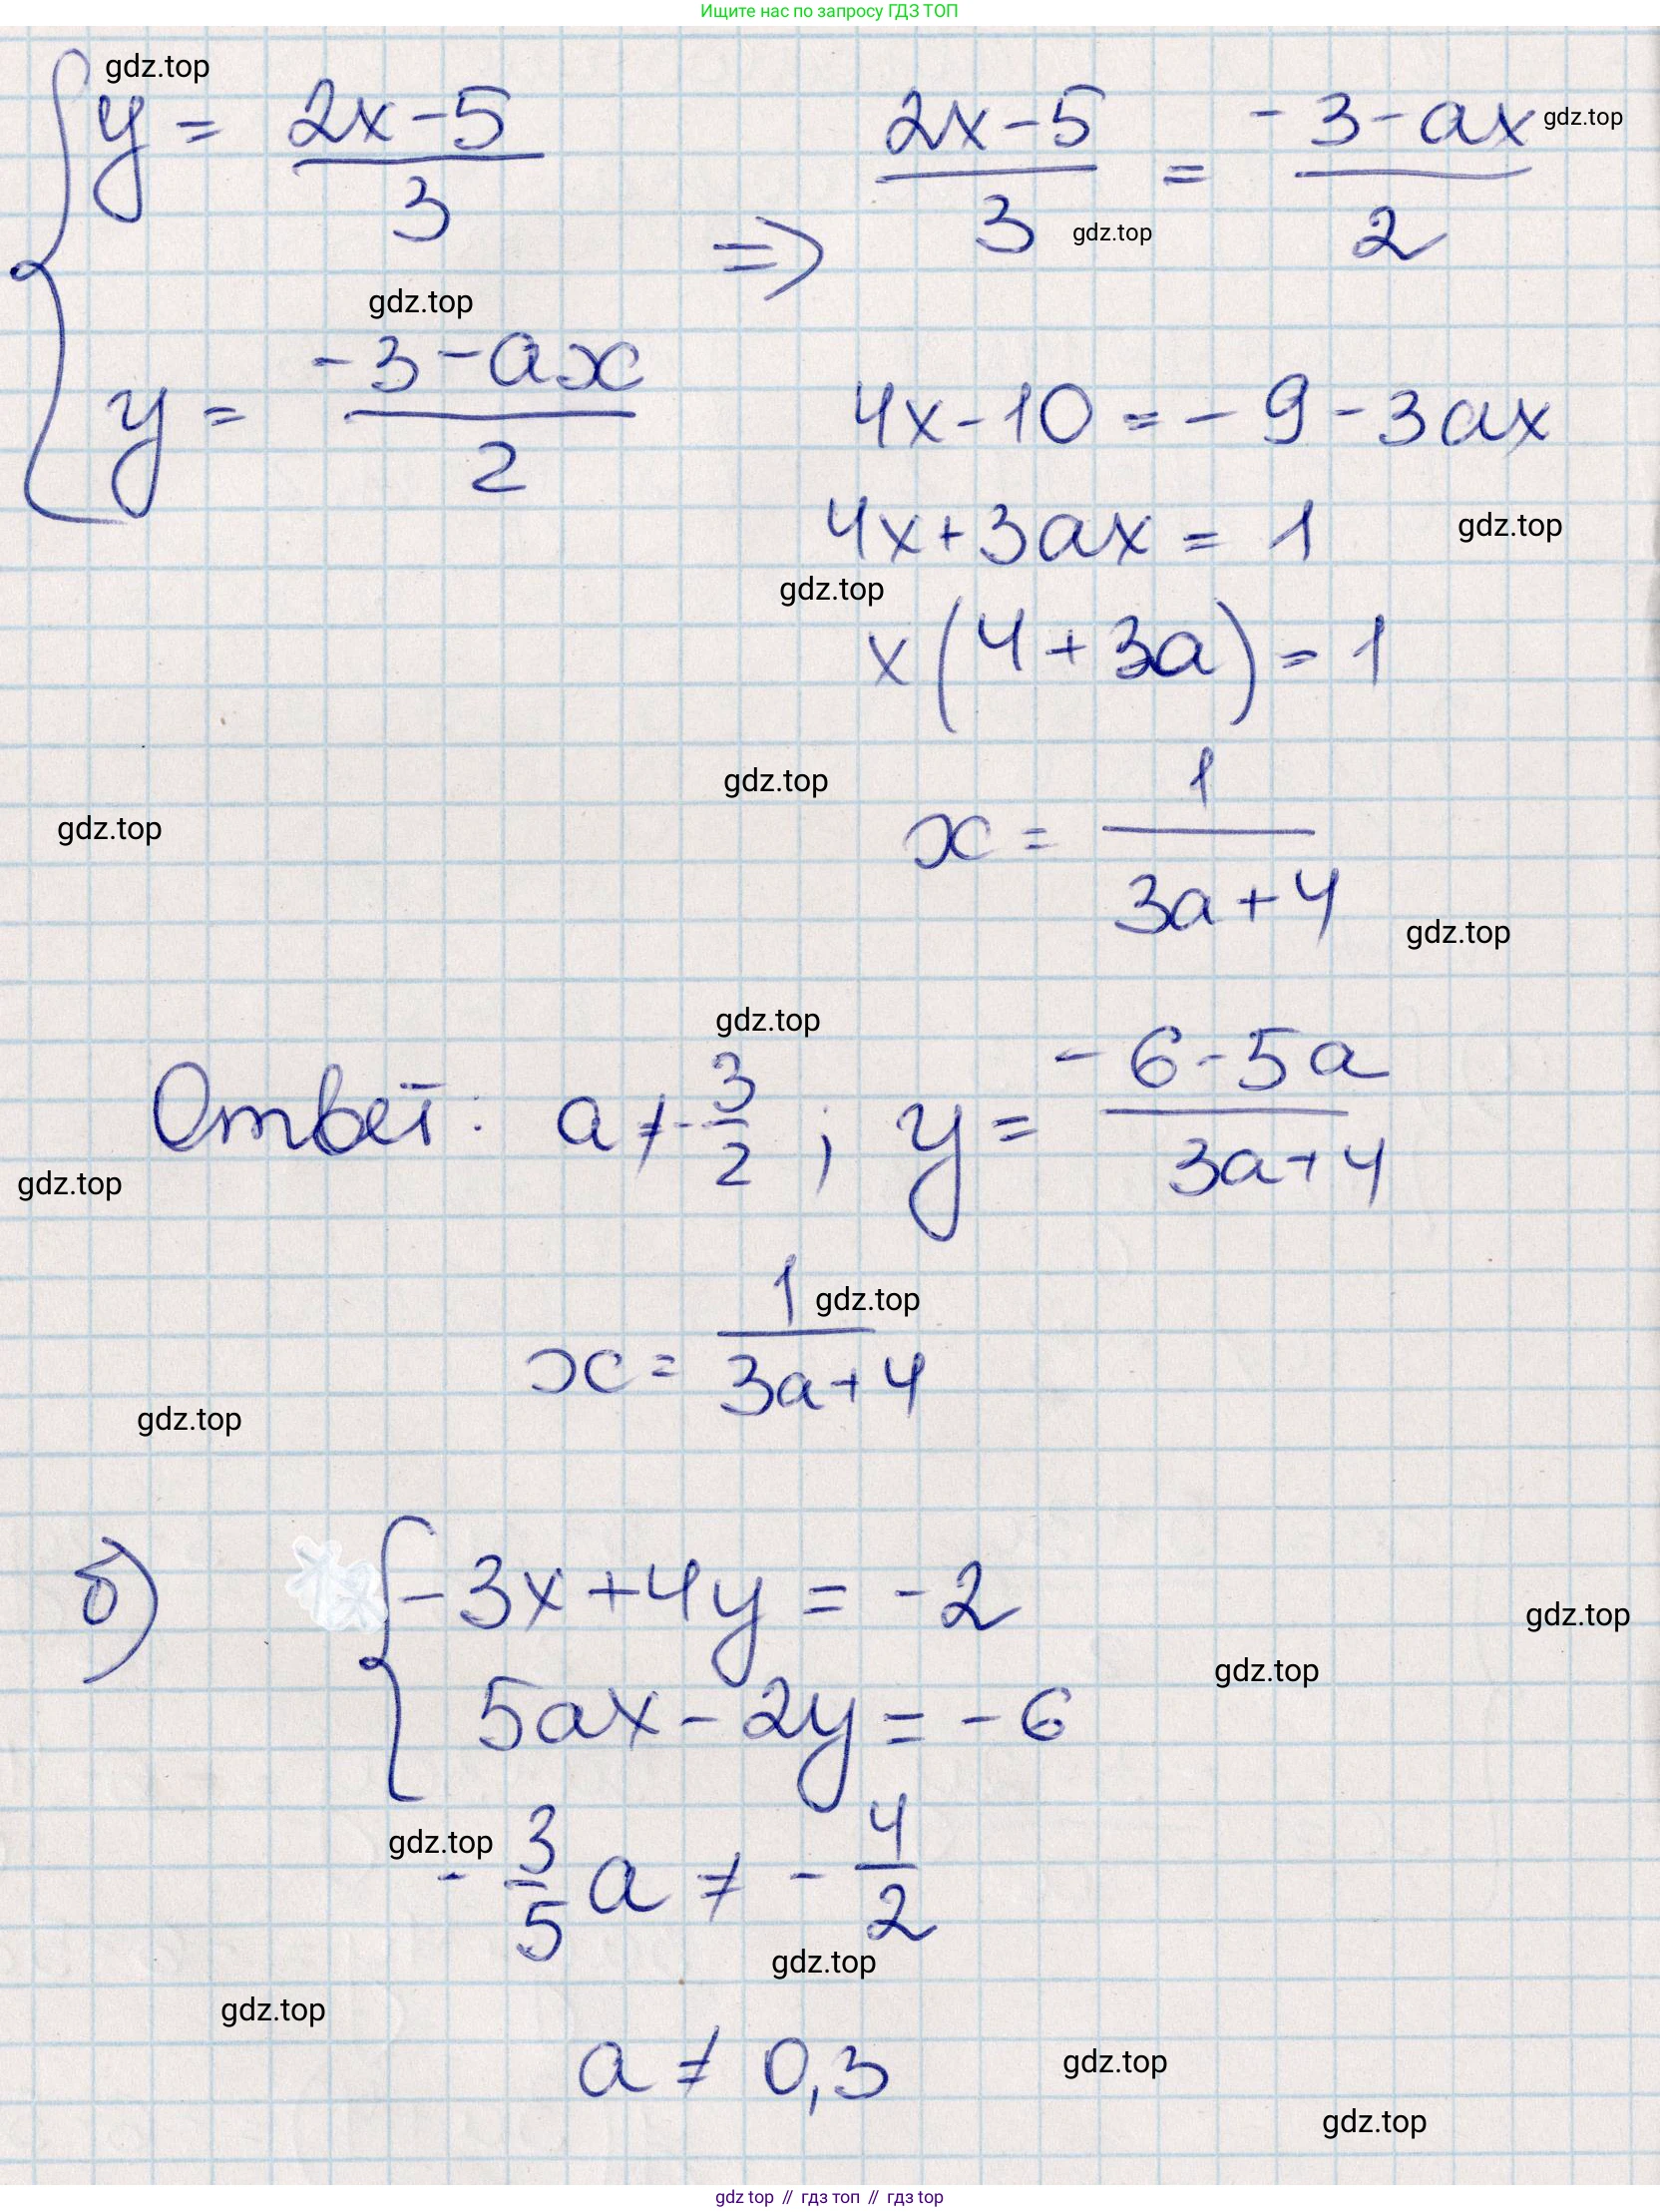 Ищите нас по запросу ГДЗ ТОП
gdz.top
y = (2x-5)/3 => (2x-5)/3 = (-3-ax)/2
gdz.top
gdz.top
gdz.top
y = (-3-ax)/2
4x-10 = -9-3ax
4x+3ax = 1
gdz.top
gdz.top
x(4+3a) = 1
gdz.top
gdz.top
x = 1/(3a+4)
gdz.top
gdz.top
Ответ: a ≠ -3/2 ; y = (-6-5a)/(3a+4)
gdz.top
x = 1/(3a+4)
gdz.top
gdz.top
б) { -3x+4y = -2
gdz.top
gdz.top
5ax-2y = -6
gdz.top
-3/5a ≠ -4/2
gdz.top
gdz.top
a ≠ 0,3
gdz.top
gdz.top
gdz top // гдз топ // gdz top